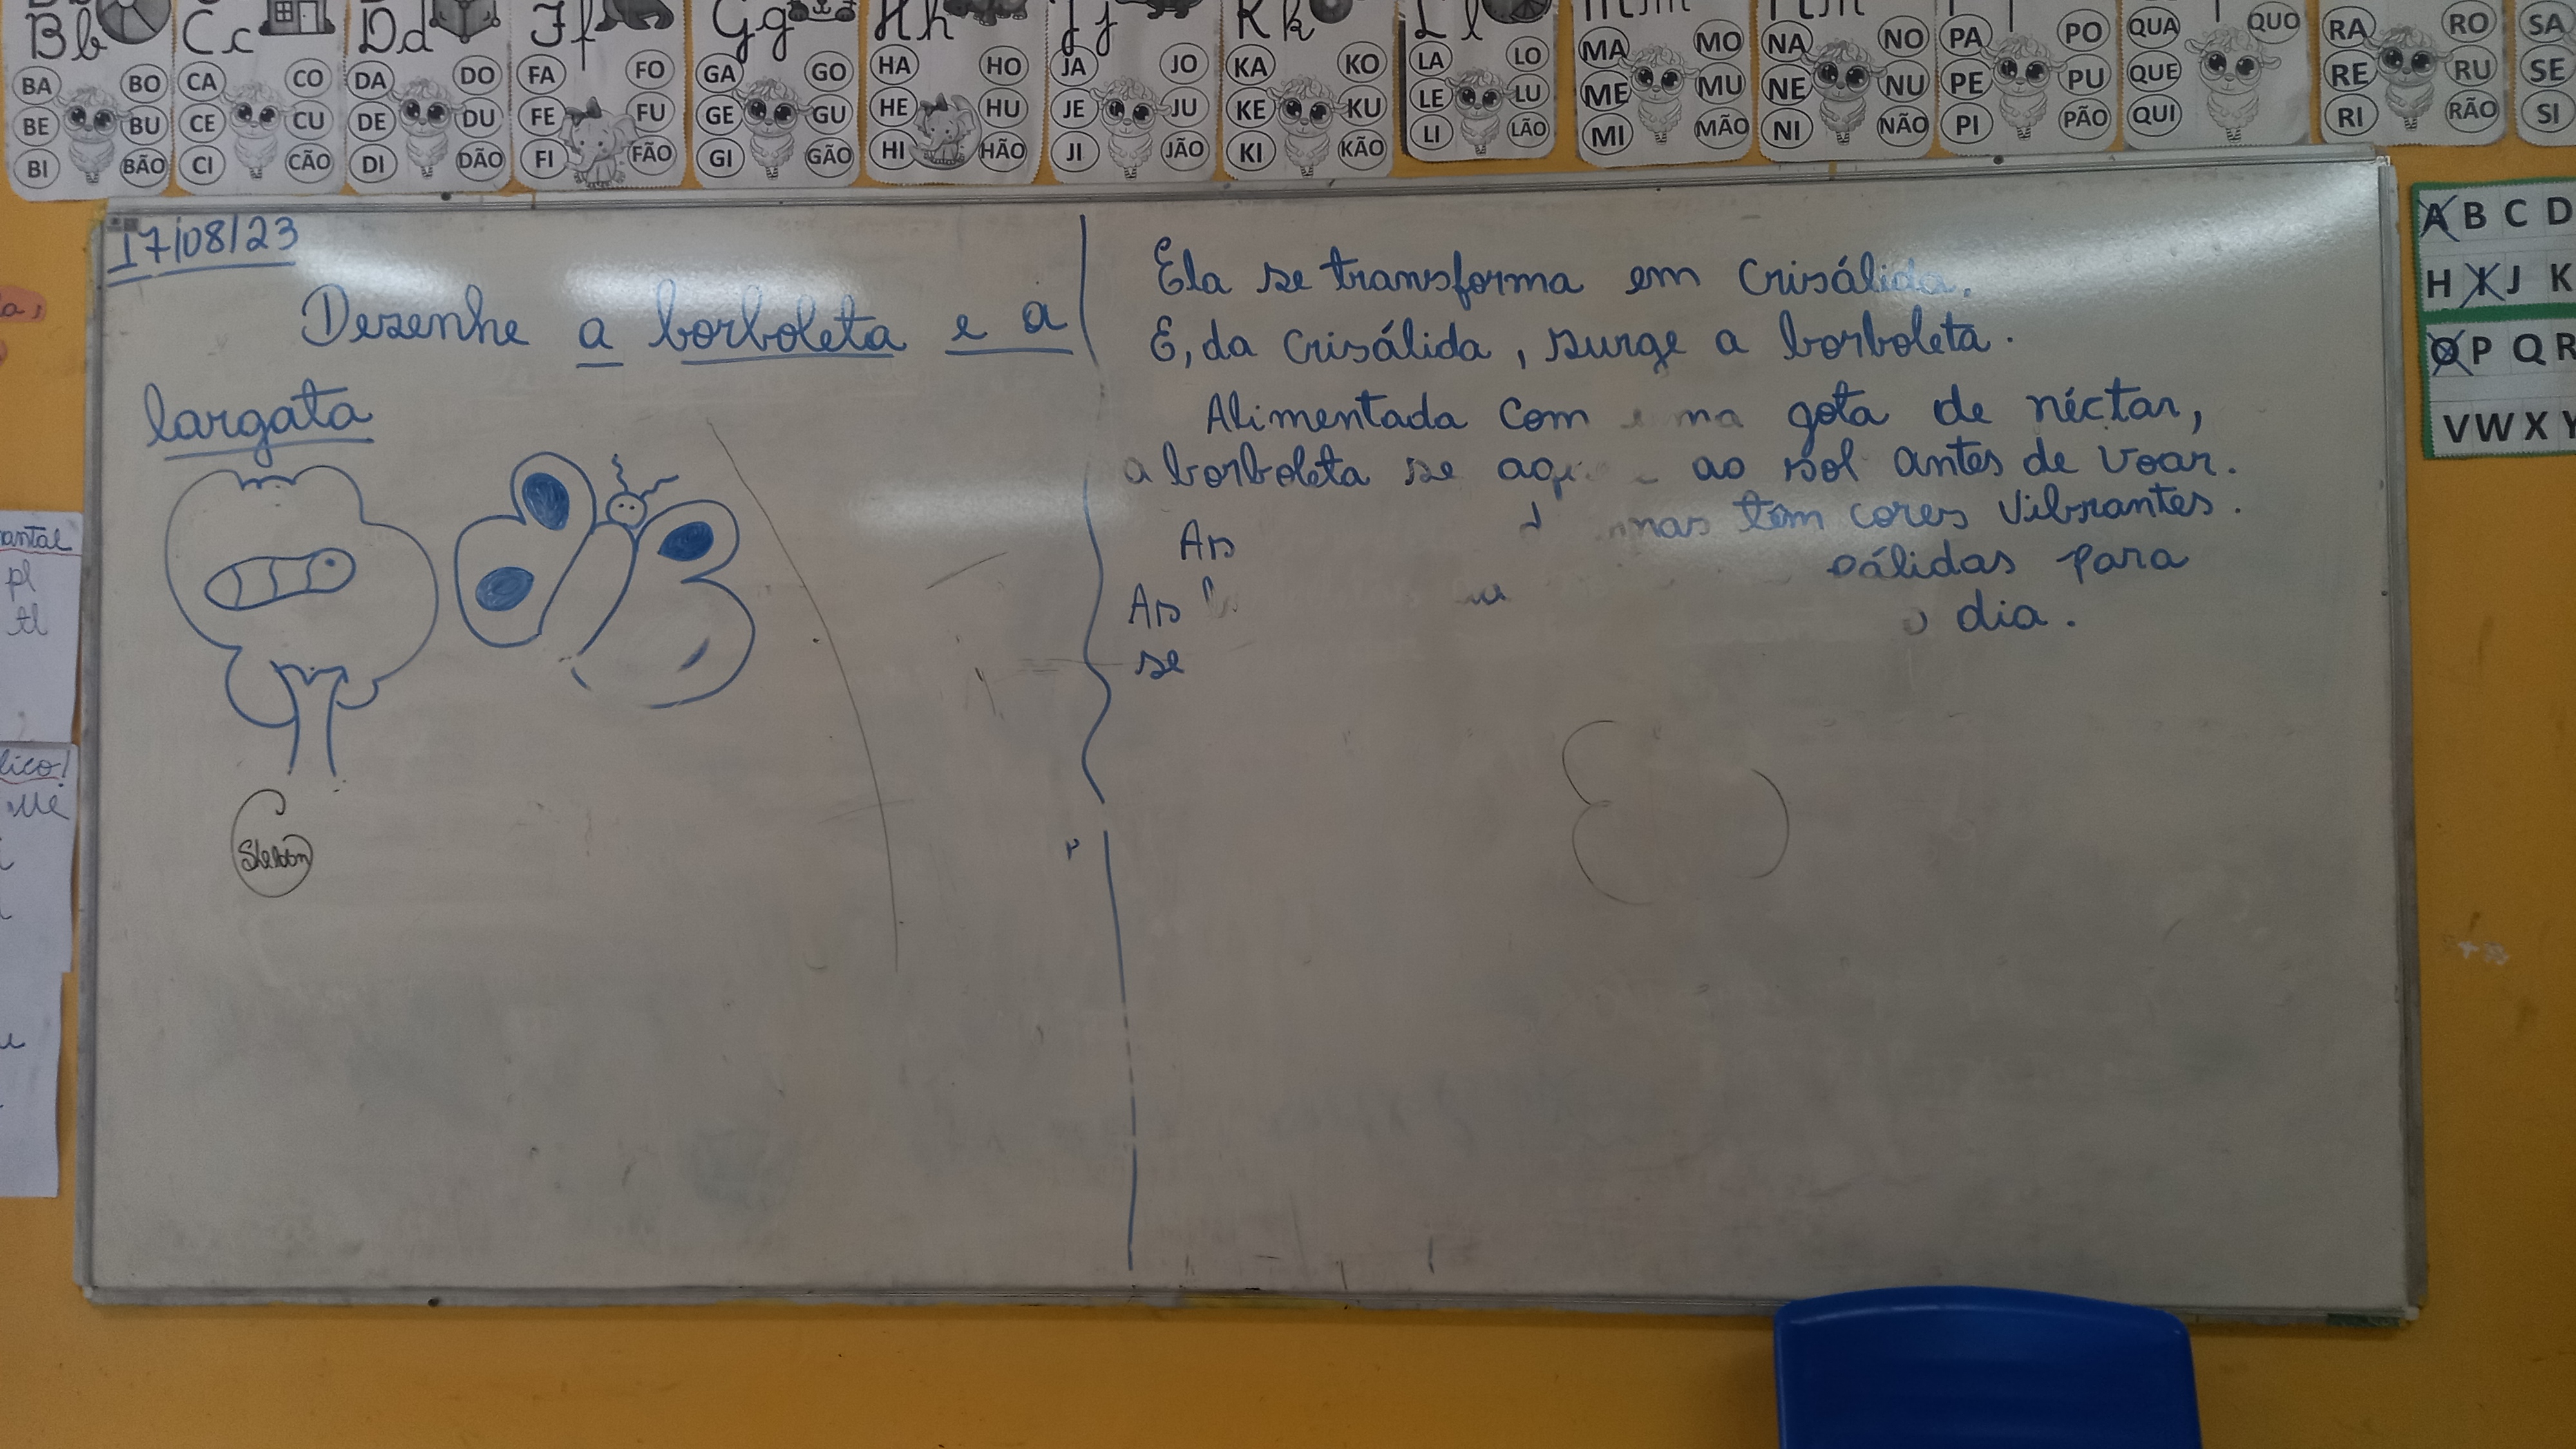 Bb
Cc
Dd
Ff
Gg
Hh
Jj
Kk
Ll
BA BO
BE BU
BI BÃO
CA CO
CE CU
CI CÃO
DA DO
DE DU
DI DÃO
FA FO
FE FU
FI FÃO
GA GO
GE GU
GI GÃO
HA HO
HE HU
HI HÃO
JA JO
JE JU
JI JÃO
KA KO
KE KU
KI KÃO
LA LO
LE LU
LI LÃO
MA MO
ME MU
MI MÃO
NA NO
NE NU
NI NÃO
PA PO
PE PU
PI PÃO
QUA QUO
QUE
QUI
RA RO
RE RU
RI RÃO
SA
SE
SI
17/08/23
Desenhe a borboleta e a
largata
Sheldon
Ela se transforma em Crisálida.
E, da Crisálida, surge a borboleta.
Alimentada Com gota de néctar,
a borboleta se ao sol antes de voar.
As têm cores vibrantes.
As pálidas para
se dia.
A B C D
H I J K
O P Q R
V W X Y
pl
tl